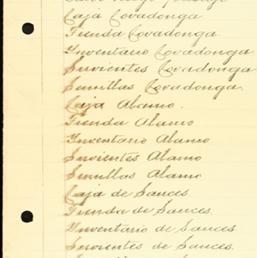 Caja Covadonga
Tienda Covadonga
Inventario Covadonga
Sirvientes Covadonga
Semillas Covadonga
Caja Alamo
Tienda Alamo
Inventario Alamo
Sirvientes Alamo
Semillas Alamo
Caja de Sauces
Tienda de Sauces
Inventario de Sauces
Sirvientes de Sauces